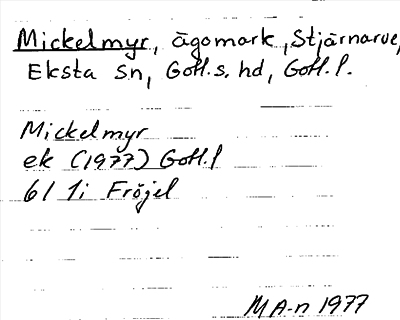 Mickelmyr, ägomark, Stjärnarve,
Eksta sn, Gotl. s. hd, Gotl. l.
Mickelmyr
ek (1977) Gotl. l
6I 1i Fröjel
MA-n 1977